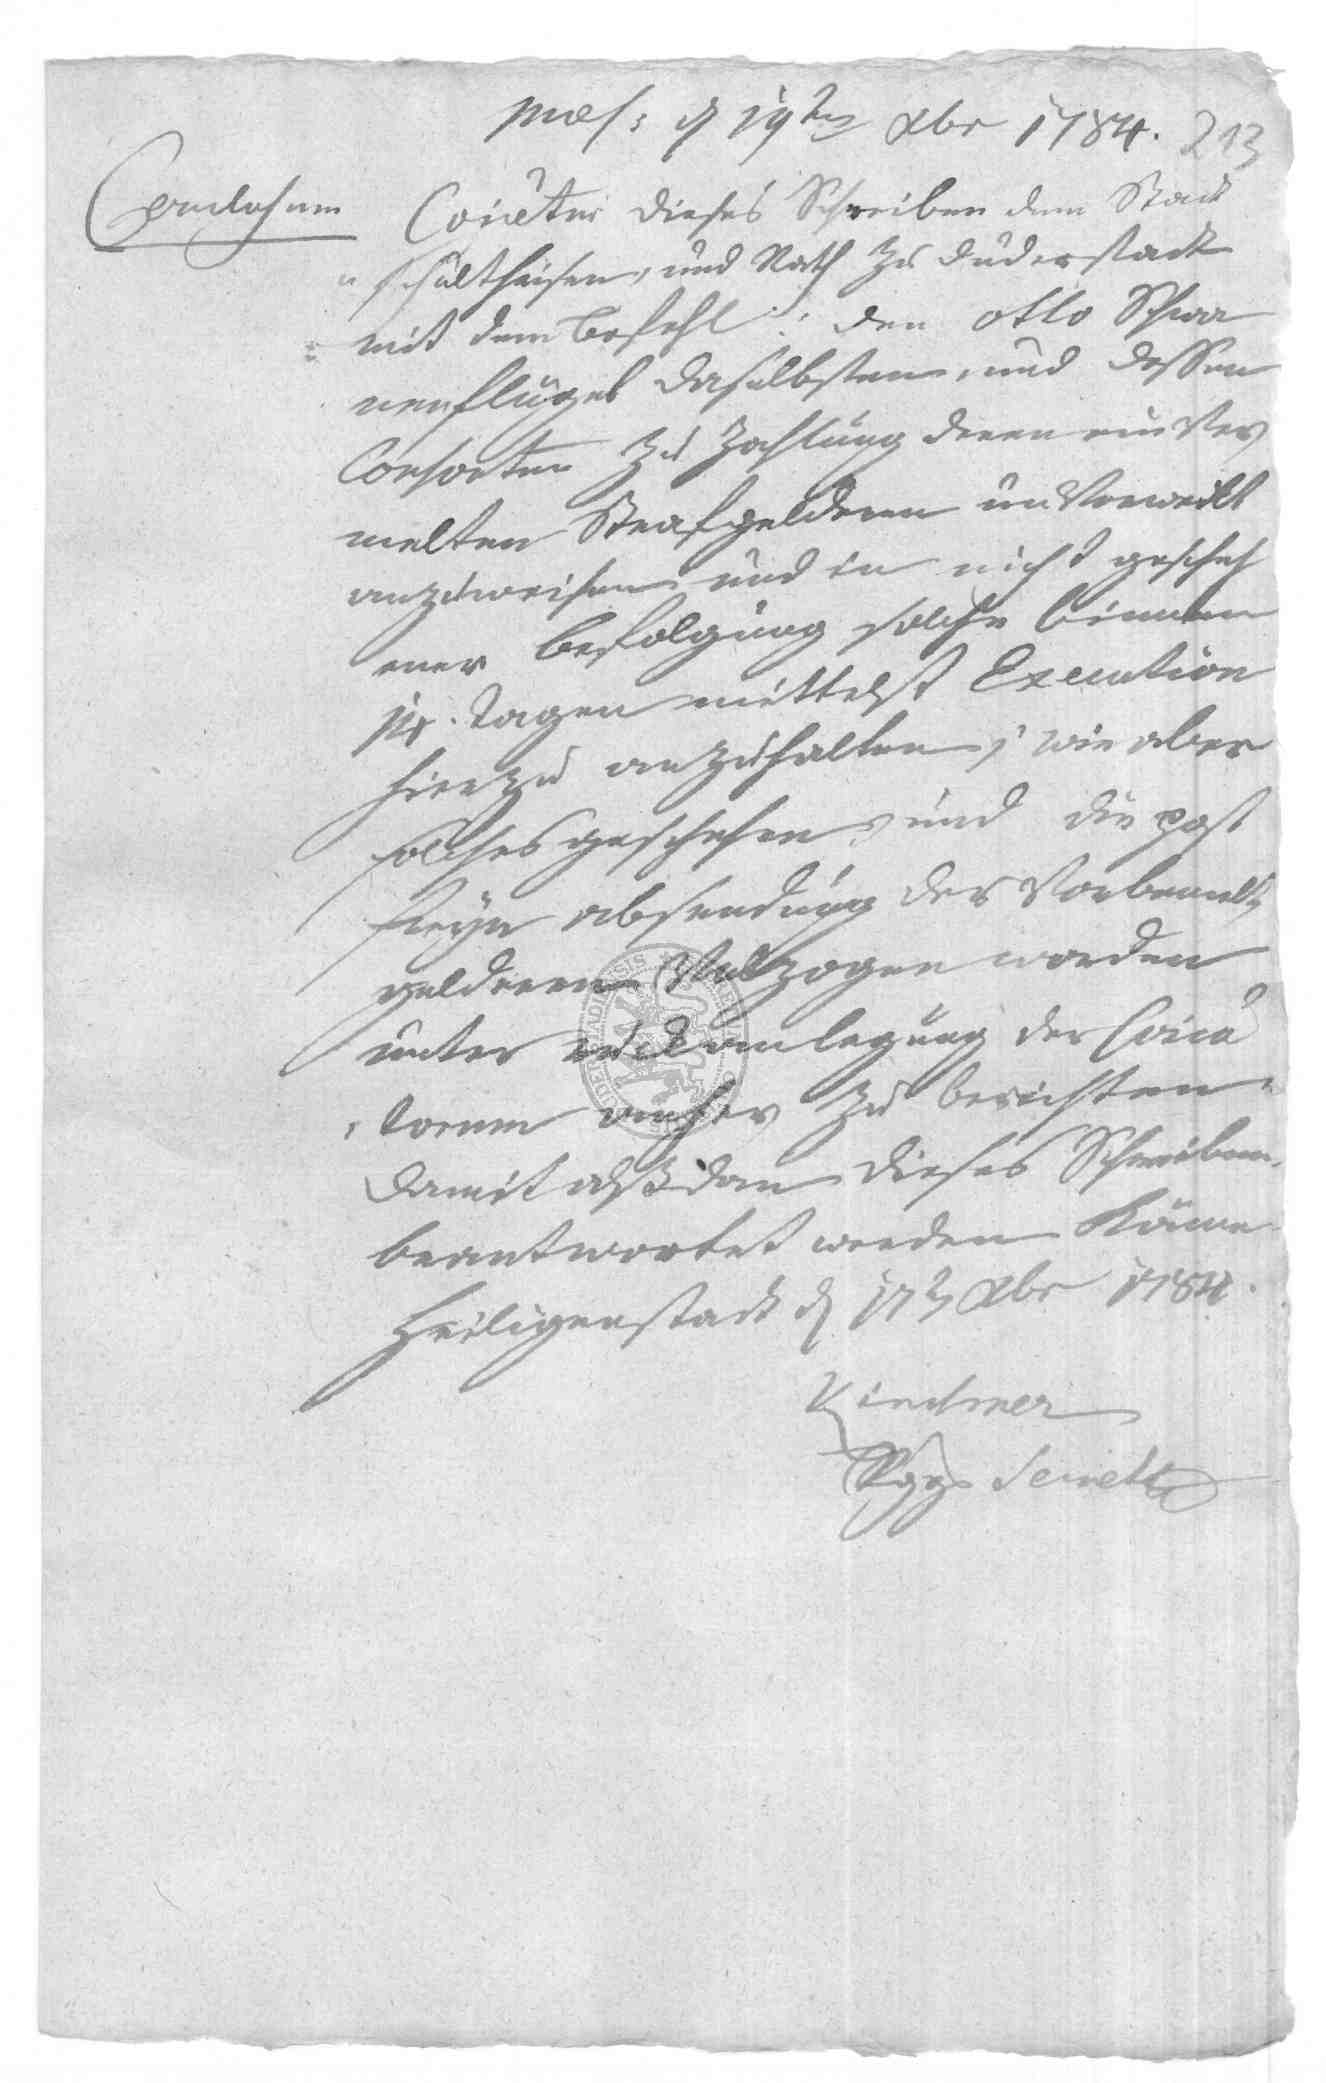 Praes: d 19ten Xbr 1784. 213
Conclusum
Coicetur dieses Schreiben dem Stadt
schultheisen, und Rath zu Duderstadt
mit dem befehl: den Otto Schwa
nenflügel daselbsten, und dessen
Consorten zu Zahlung deren
melten Strafgelderen unverweilt
anzuweisen und in nicht gescheh
ener befolgung solche binnen
14. tagen mittelst Execution
hierzu anzuhalten, wie aber
solches geschehen, und die post
freye absendung der
gelderen vollzogen worden
unter rückanlegung der Coica
torum anher zu berichten
damit alßdan dieses Schreiben
beantwortet werden könne
Heiligenstadt d 17ten Xbr 1784.